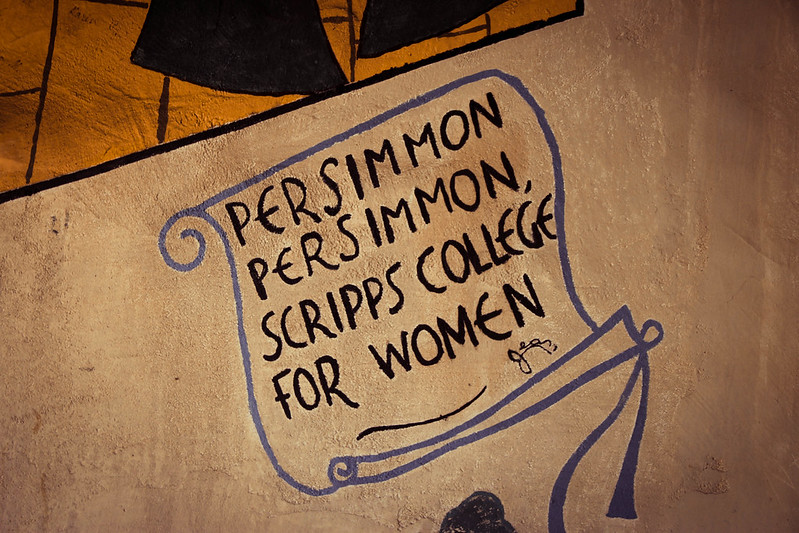 PERSIMMON
PERSIMMON,
SCRIPPS COLLEGE
FOR WOMEN